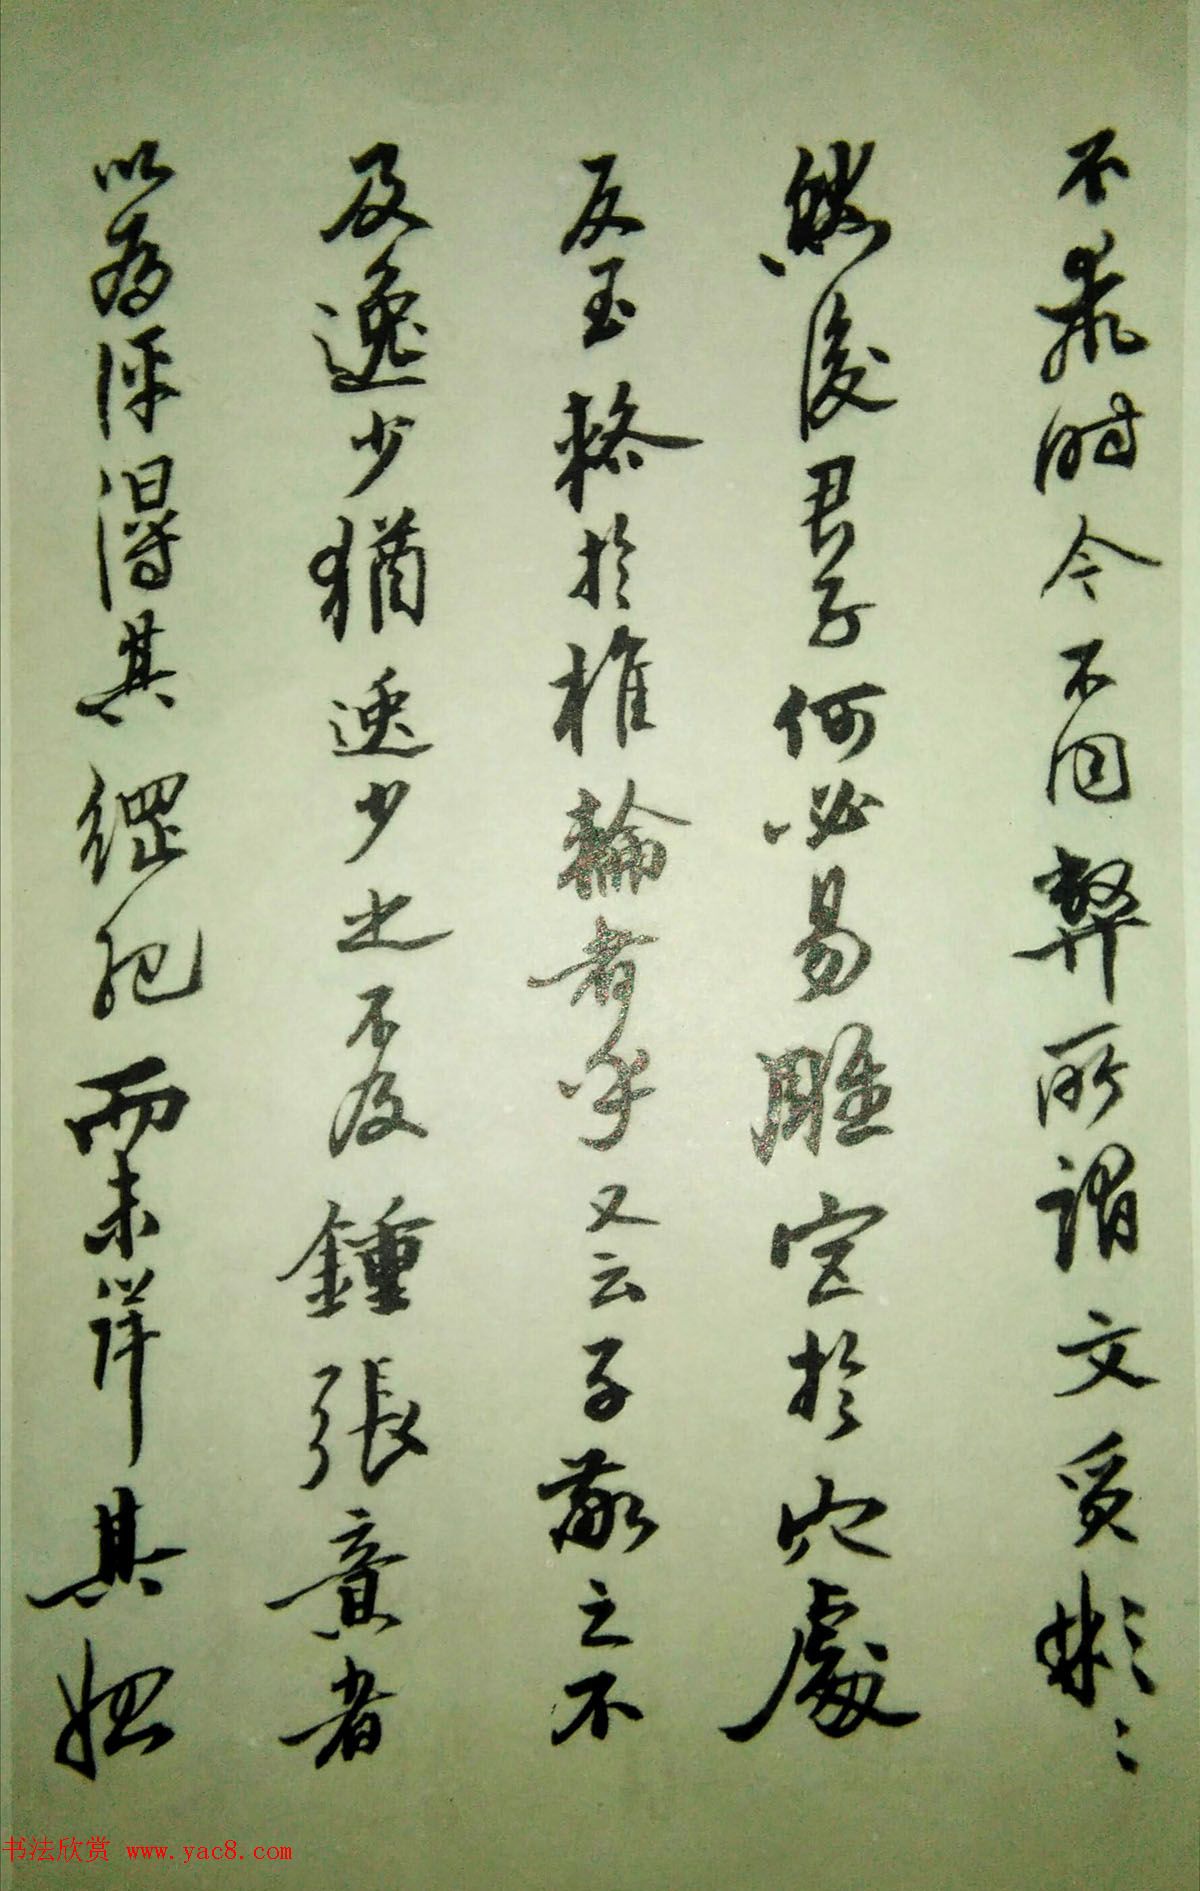 不乖時今不同弊所謂文質彬〻
然後君子何必易雕宮於穴處
反玉輅於椎輪者乎又云子敬之不
及逸少猶逸少之不及鍾張意者
以為評得其綱紀而未詳其始
书法欣赏 www.yac8.com